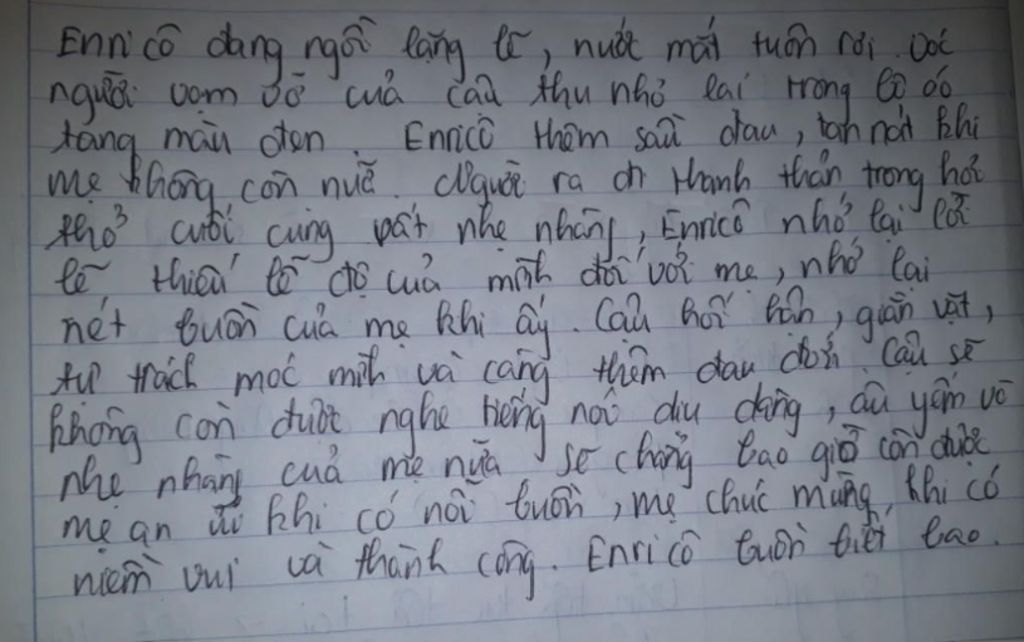 Enricô đang ngồi lặng lẽ, nước mắt tuôn rơi. Vóc
người vạm vỡ của cậu thu nhỏ lại trong bộ áo
tang màu đen. Enricô thêm sầu đau, tan nát khi
mẹ không còn nữa. Người ra đi thanh thản trong hơi
thở cuối cùng rất nhẹ nhàng, Enricô nhớ lại lỗi
lẽ, thiếu lễ độ của mình đối với mẹ, nhớ lại
nét buồn của mẹ khi ấy. Cậu hối hận, giằn vặt,
tự trách móc mình và càng thêm đau đớn. Cậu sẽ
không còn được nghe tiếng nói dịu dàng, âu yếm và
nhẹ nhàng của mẹ nữa sẽ chẳng bao giờ còn được
mẹ an ủi khi có nỗi buồn, mẹ chúc mừng, khi có
niềm vui và thành công. Enricô buồn biết bao.